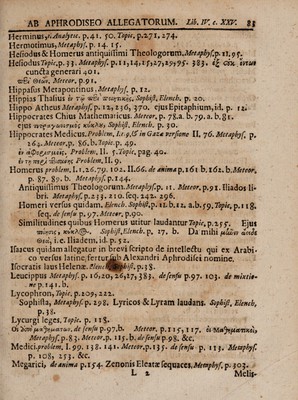 AB APHRODISEO ALLEGATORUM. Lib. IV. c. XXV. 83
Herminus, Analytic. p. 41. 50. Topic. p. 271, 274.
Hermotimus, Metaphys. p. 14. 15.
Hesiodus & Homerus antiquissimi Theologorum, Metaphys. p. 11, 95.
Hesiodus Topic. p. 33. Metaphys. p. 11, 14, 15, 27, 29, 95. 383. ἐξ
cuncta generari 401.
Meteor. p. 91.
Hippasus Metapontinus, Metaphys. p. 12.
Hippias Thasius ἐν Sophist. Elench. p. 20.
Hippo Atheus Metaphys. p. 12, 236, 370. ejus Epitaphium, id. p. 12.
Hippocrates Chius Mathematicus. Meteor. p. 78. a b. 79. a b. 81.
ejus Sophist. Elench. p. 30.
Hippocrates Medicus, Problem. & in Gazæ versione II. 76. Metaphys. p.
162. Meteor. p. 86, b. Topic. p. 49.
ἐν Problem. II. 5. Topic. pag. 40.
ἐν τῷ περὶ Problem. II. 9.
Homerus problem. I. 126. 79. 102. II. 66. de anima p. 161 b. 162. b. Meteor.
p. 87. 89. b. Metaphys. p. 144.
Antiquissimus Theologorum. Metaphys. p. 11. Meteor. p. 91. Iliados li-
bri, Metaphys. p. 233. 210. seq. 242. 296.
Homeri versus quidam. Elench. Sophist. p. 11. b. 12. a. b. 59. Topic. p. 118,
seq. de sens. p. 97. Meteor. p. 90.
Similitudines quibus Homerus utitur laudantur Topic. p. 255. Ejus
Sophist. Elench. p. 17. b. Da mihi
thoui, i. e. Iliadem, id. p. 52.
Isaacus quidam allegatur in brevi scripto de intellectu qui ex Arabi-
co versus latine, fertur sub Alexandri Aphrodisei nomine.
Isocratis laus Helenæ. Elench. Sophist. p. 38.
Leucippus Metaphys. p. 16, 20, 26, 27, 383. de sensu p. 97. 103. de mixtio-
ne p. 141. b.
Lycophron, Topic. p. 209, 222.
Sophista, Metaphys. p. 298. Lyricos & Lyram laudans. Sophist. Elench.
p. 38.
Lycurgi leges, Topic. p. 118.
Οἱ de sensu p. 97. b. Meteor. p. 115, 117. ἐν
Metaphys. p. 83. Meteor. p. 115. b. de sensu p. 98. &c.
Medici. problem. I. 99. 138. 141. Meteor. p. 135. de sensu p. 113. Metaphys.
p. 108, 253. &c.
Megarici, de anima p. 154. Zenonis Eleatæ sequaces, Metaphys. p. 303.
L 2 Melis-